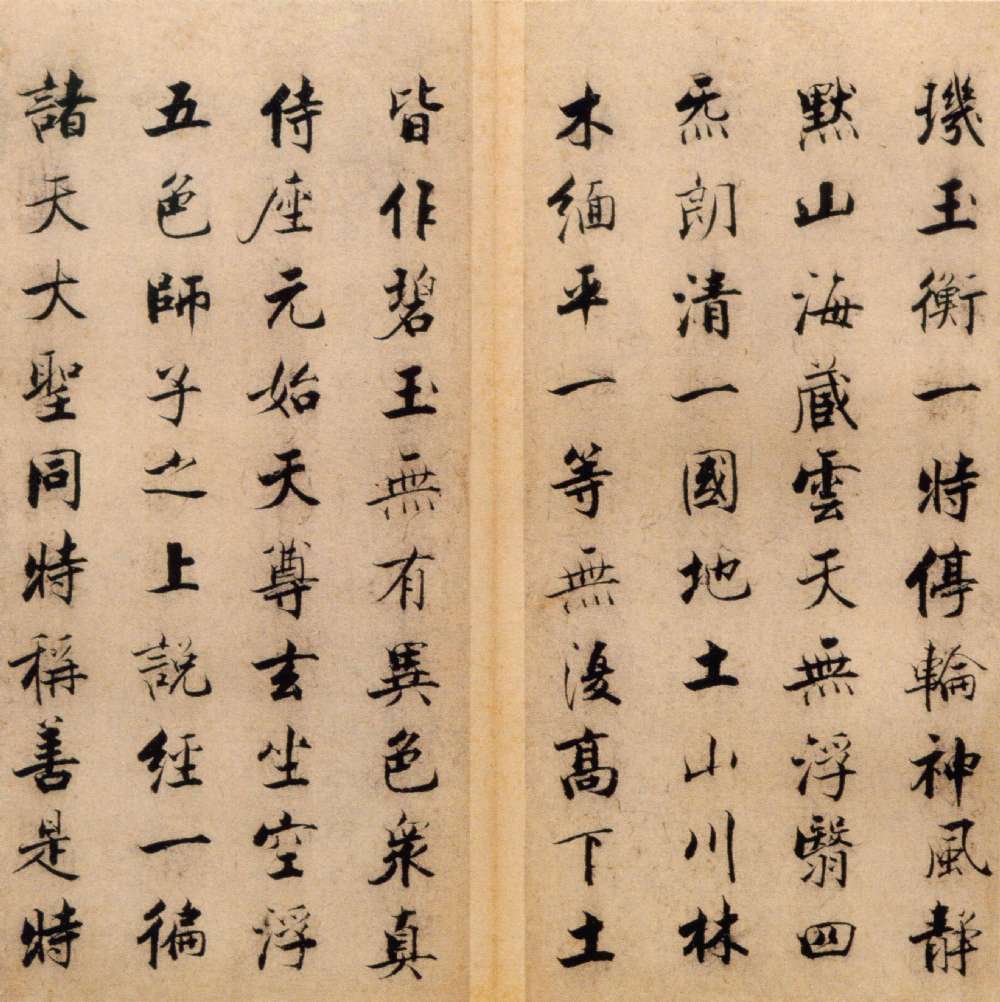 璣玉衡一特停輪神風靜
默山海藏雲天無浮翳四
炁朗清一國地土山川林
木緬平一等無復高下土
皆作碧玉無有異色衆真
侍座元始天尊玄坐空浮
五色師子之上說經一徧
諸天大聖同特稱善是特